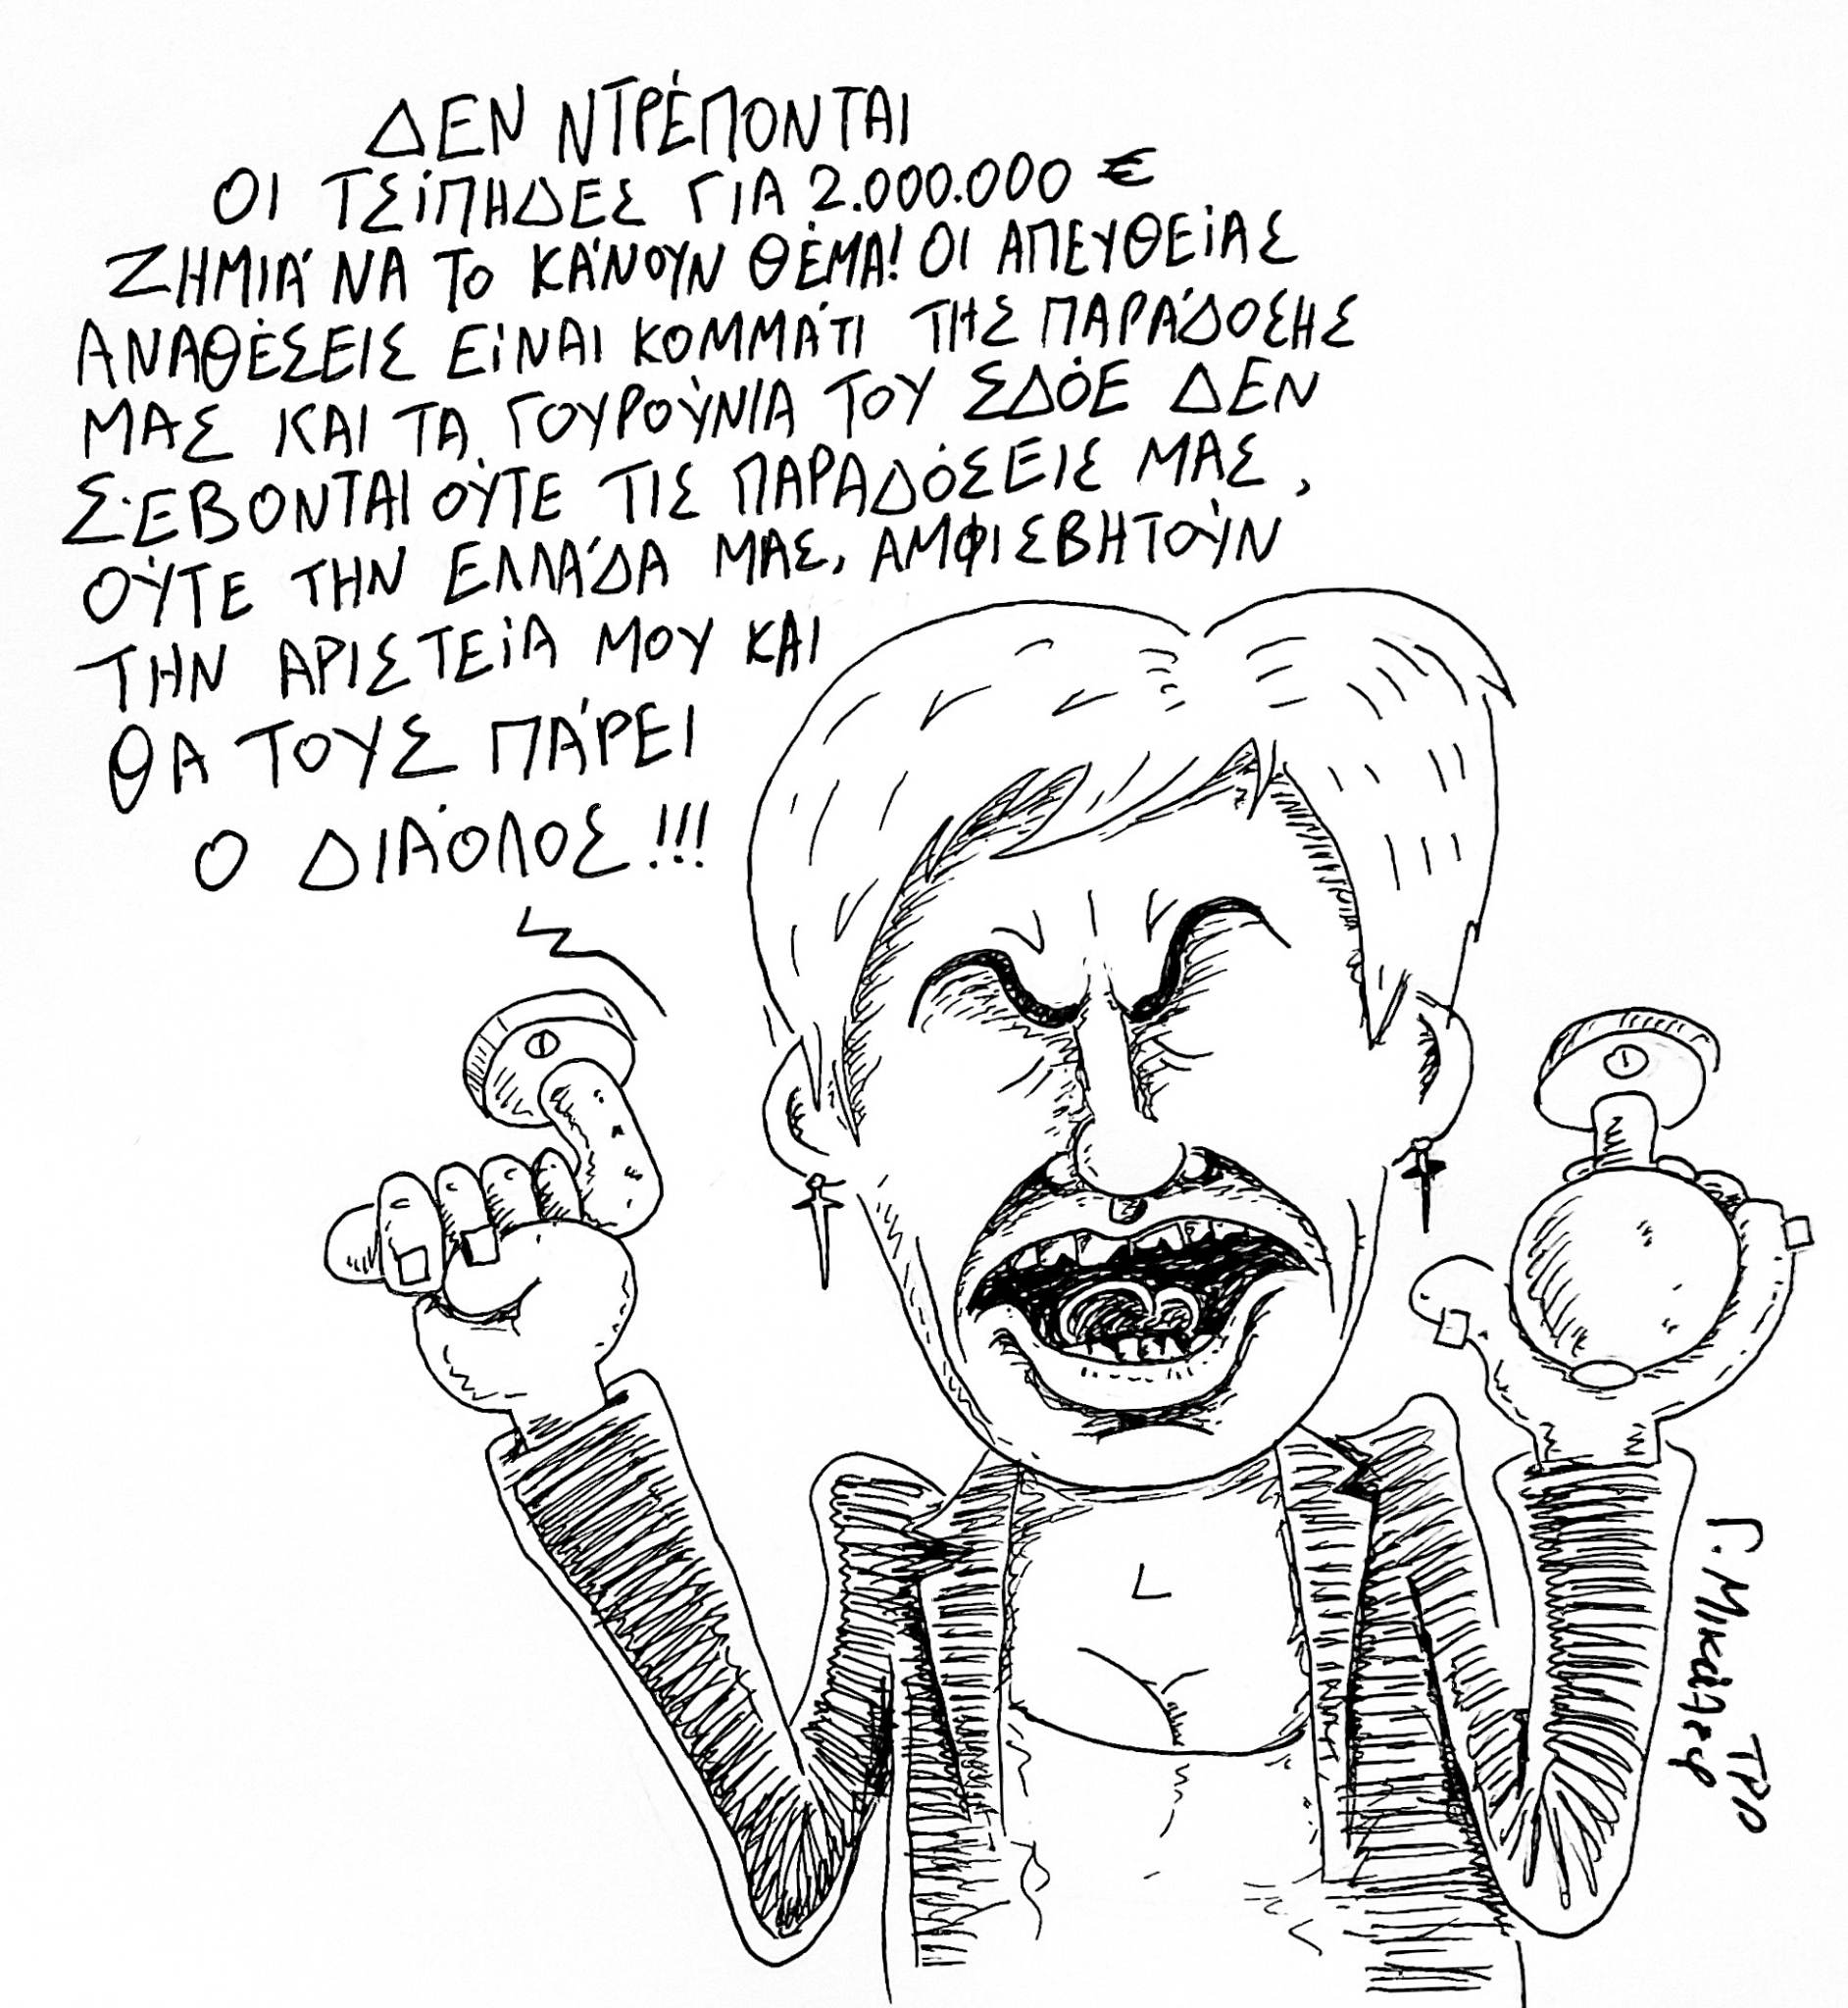 ΔΕΝ ΝΤΡΈΠΟΝΤΑΙ
ΟΙ ΤΣΊΠΗΔΕΣ ΓΙΑ 2.000.000 €
ΖΗΜΙΆ ΝΑ ΤΟ ΚΆΝΟΥΝ ΘΈΜΑ! ΟΙ ΑΠΕΥΘΕΊΑΣ
ΑΝΑΘΈΣΕΙΣ ΕΊΝΑΙ ΚΟΜΜΆΤΙ ΤΗΣ ΠΑΡΆΔΟΣΗΣ
ΜΑΣ ΚΑΙ ΤΑ ΓΟΥΡΟΎΝΙΑ ΤΟΥ ΣΔΌΕ ΔΕΝ
ΣΈΒΟΝΤΑΙ ΟΎΤΕ ΤΙΣ ΠΑΡΑΔΌΣΕΙΣ ΜΑΣ,
ΟΎΤΕ ΤΗΝ ΕΛΛΆΔΑ ΜΑΣ, ΑΜΦΙΣΒΗΤΟΎΝ
ΤΗΝ ΑΡΙΣΤΕΊΑ ΜΟΥ ΚΑΙ
ΘΑ ΤΟΥΣ ΠΆΡΕΙ
Ο ΔΙΆΟΛΟΣ!!!